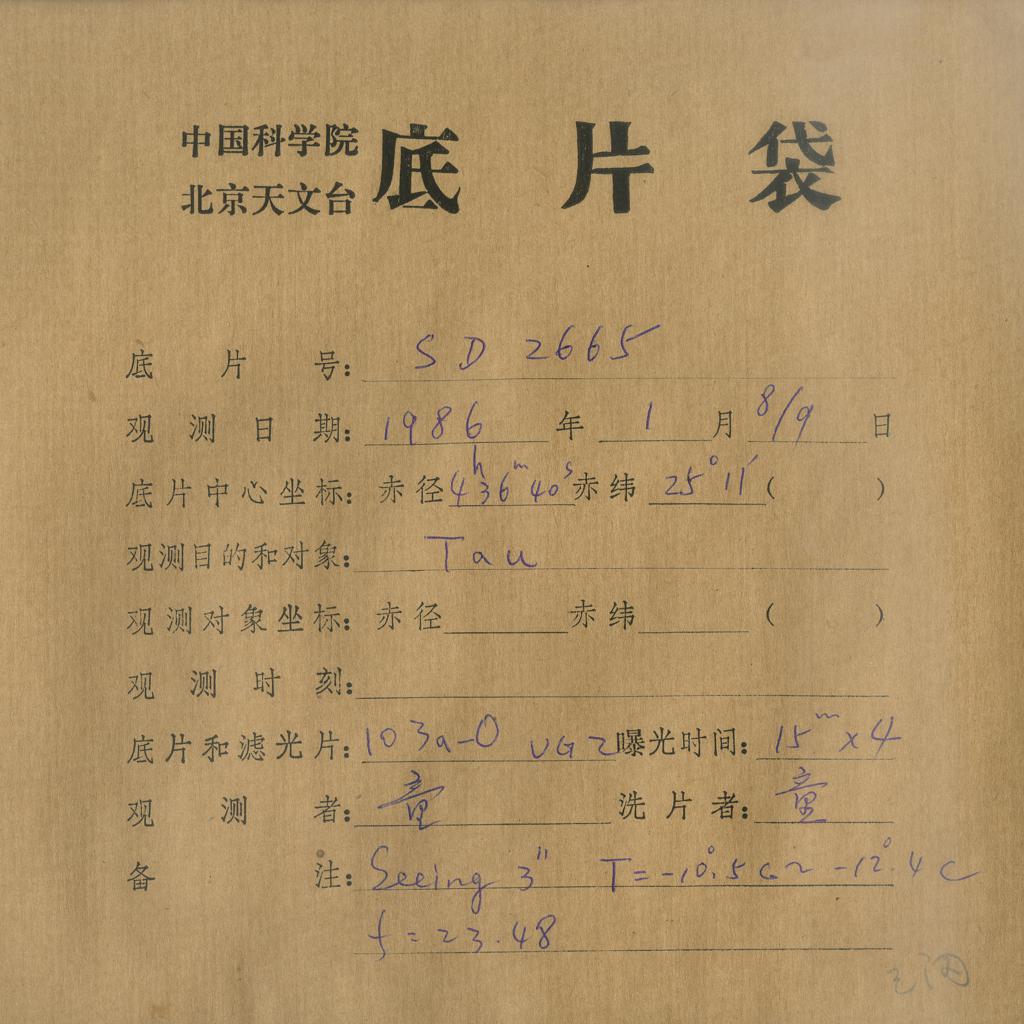 中国科学院
北京天文台
底片袋
底片号: SD 2665
观测日期: 1986 年 1 月 8/9 日
底片中心坐标: 赤径 4ʰ36ᵐ40ˢ 赤纬 25°11′ ( )
观测目的和对象: Tau
观测对象坐标: 赤径 赤纬 ( )
观测时刻:
底片和滤光片: 103a-O UG2 曝光时间: 15ᵐ×4
观测者: 童 洗片者: 童
备注: Seeing 3″ T=-10°.5 C~ -12°.4 C
f=23.48